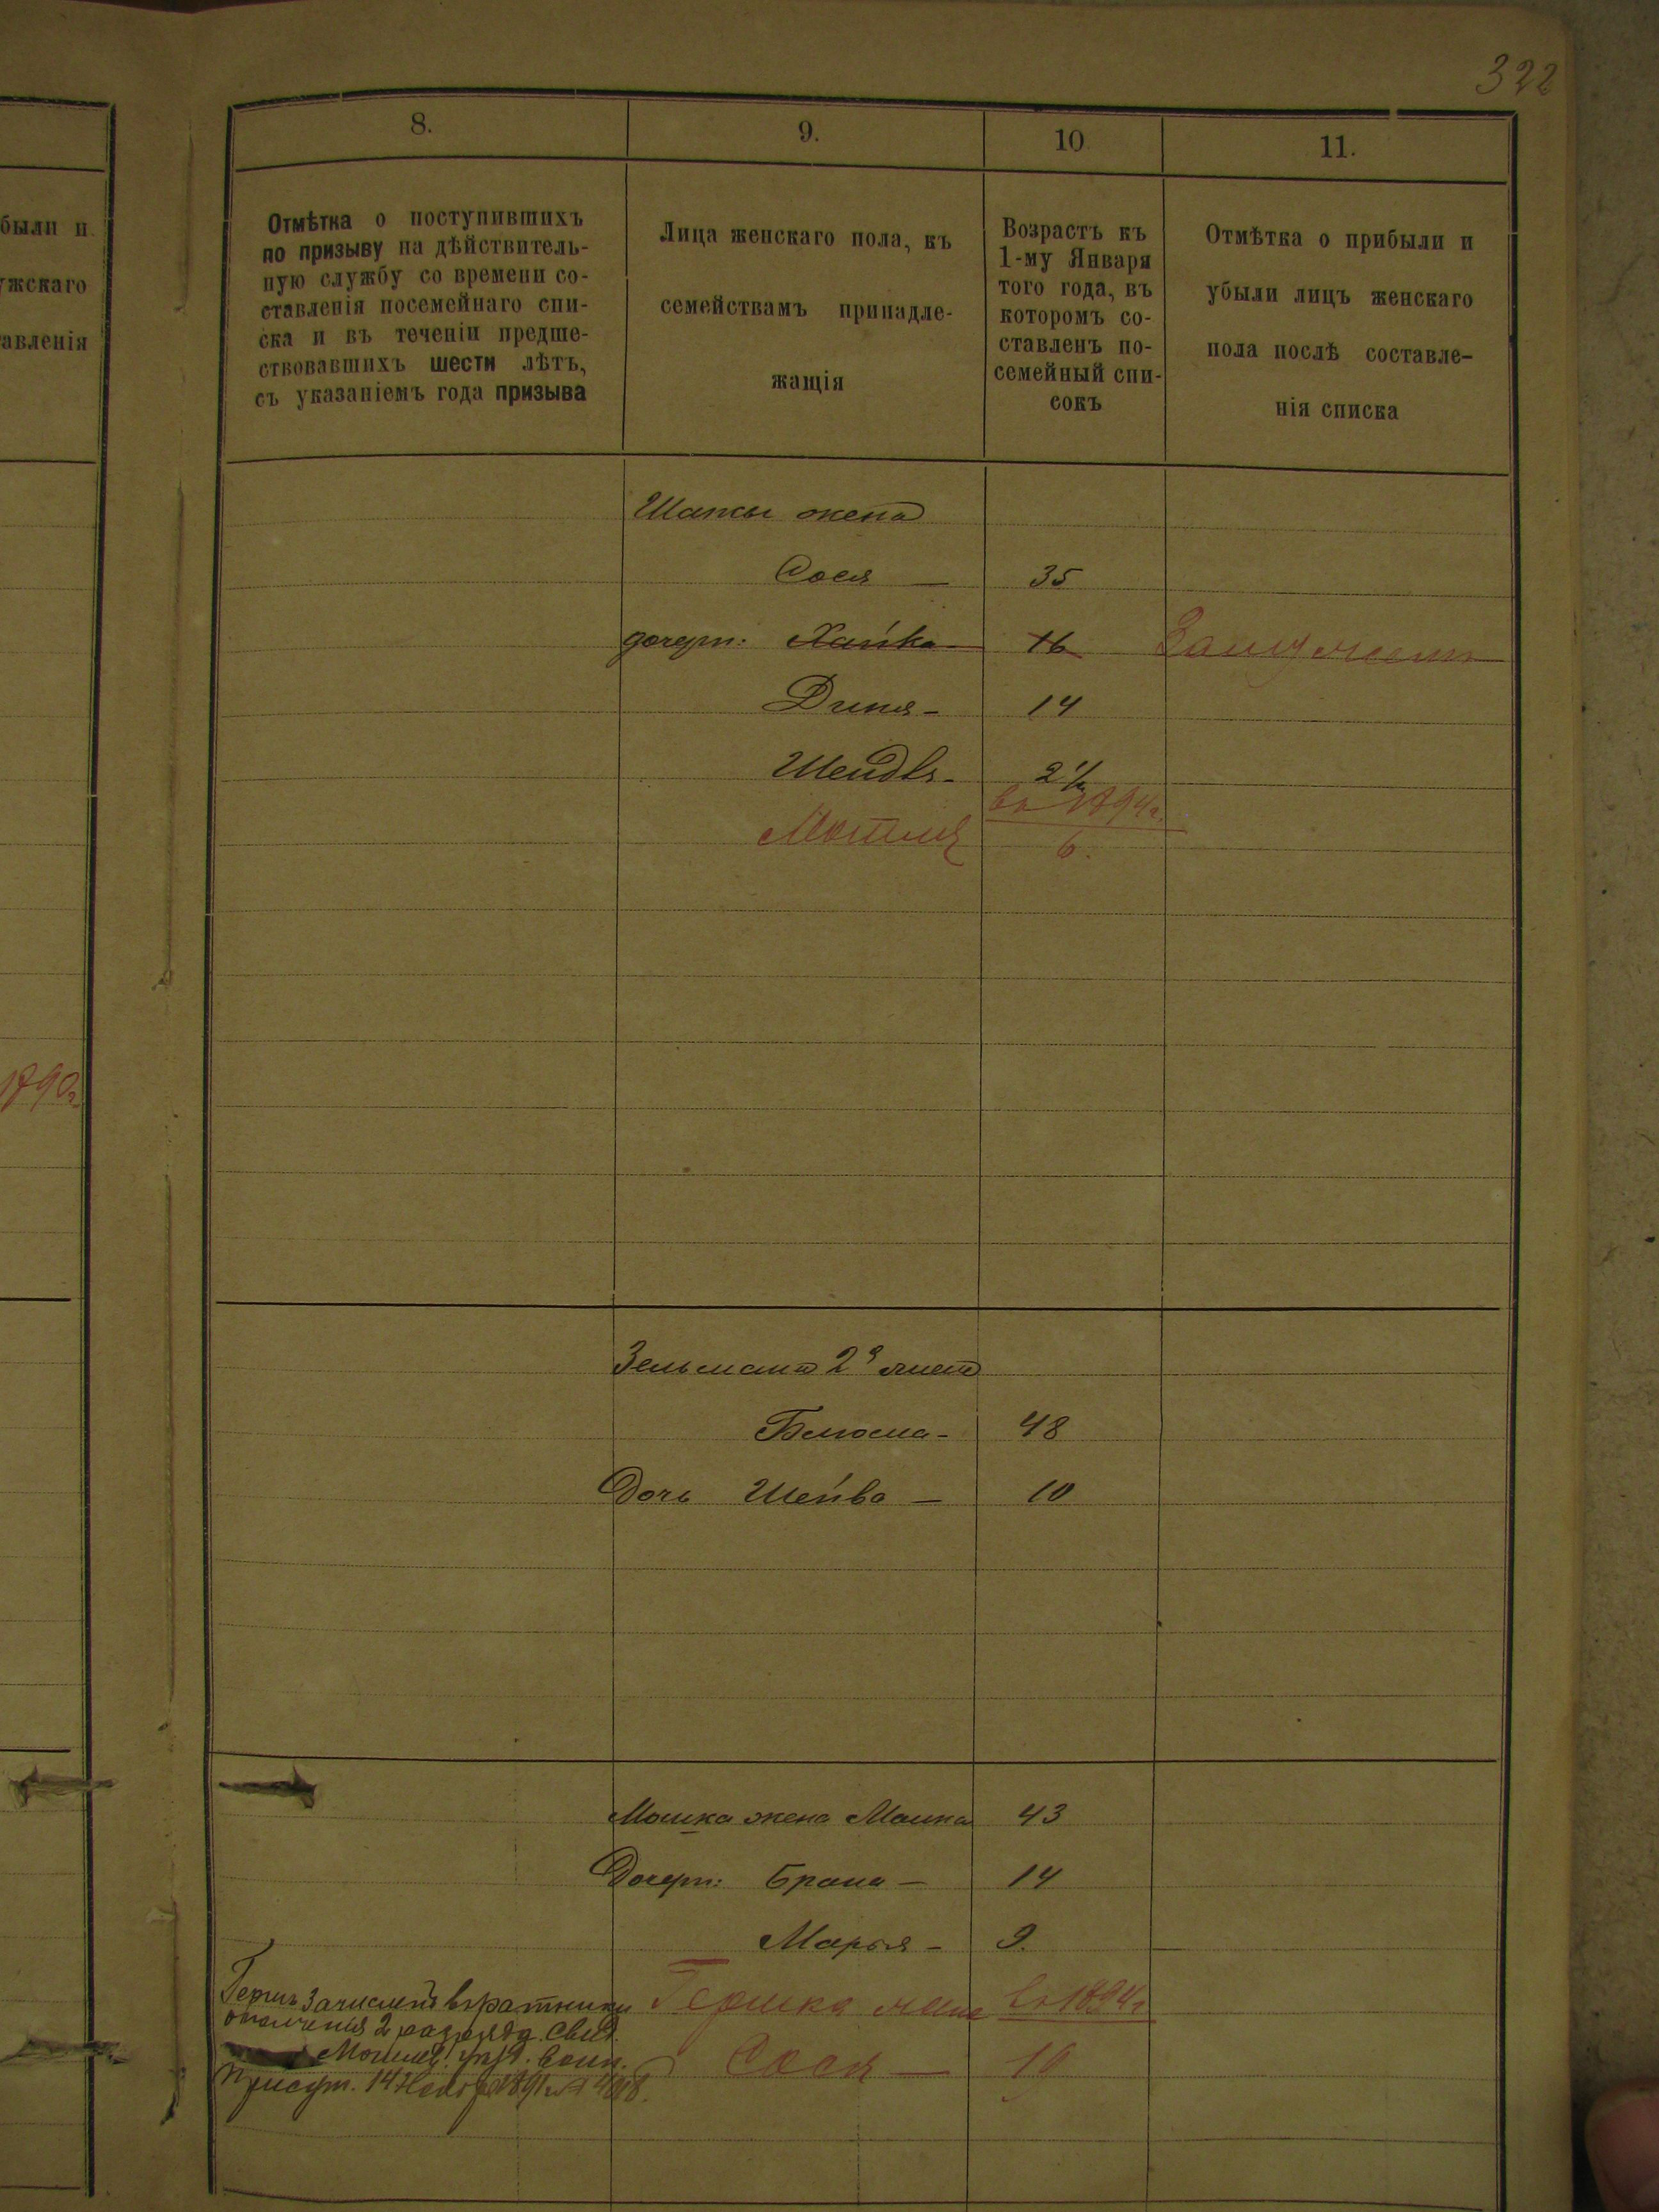 322
были и
ужскаго
авленія
1890г.
8.
9.
10
11.
Отмѣтка о поступившихъ
по призыву на дѣйствитель-
ную службу со времени со-
ставленія посемейнаго спи-
ска и въ теченіи предше-
ствовавшихъ шести лѣтъ,
съ указаніемъ года призыва
Лица женскаго пола, къ
семействамъ принадле-
жащія
Возрастъ къ
1-му Января
того года, въ
которомъ со-
ставленъ по-
семейный спи-
сокъ
Отмѣтка о прибыли и
убыли лицъ женскаго
пола послѣ составле-
нія списка
жена
Сося — 35
дочери: Хайка 16 Замужемъ
Диня - 14
2 1/2
въ 1894г.
Мотля 6.
Зельмана 2я жена
Блюма - 48
Дочь Шейва — 10
Мошка жена Манка 43
Дочери: Брана — 14
Марья - 9.
Гершъ зачисленъ въ ратники Гершка жена въ 1894г
ополченія 2 разряда. Свид.
Могилев. уѣзд. воин. Сося — 19
присут. 14 1891 №